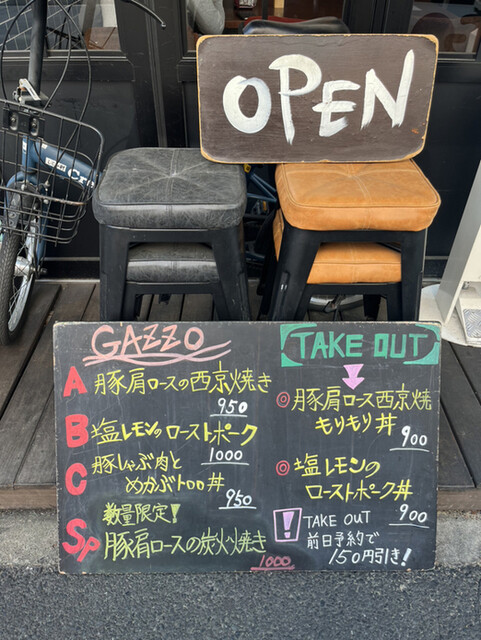 OPEN
GAZZO
A 豚肩ロースの西京焼き
950
B 塩レモンのローストポーク
1000
C 豚しゃぶ肉と
めかぶトロロ丼
950
数量限定!
Sp 豚肩ロースの炭火焼き
1000
TAKE OUT
◎豚肩ロース西京焼
もりもり丼
900
◎塩レモンの
ローストポーク丼
900
! TAKE OUT
前日予約で
150円引き!